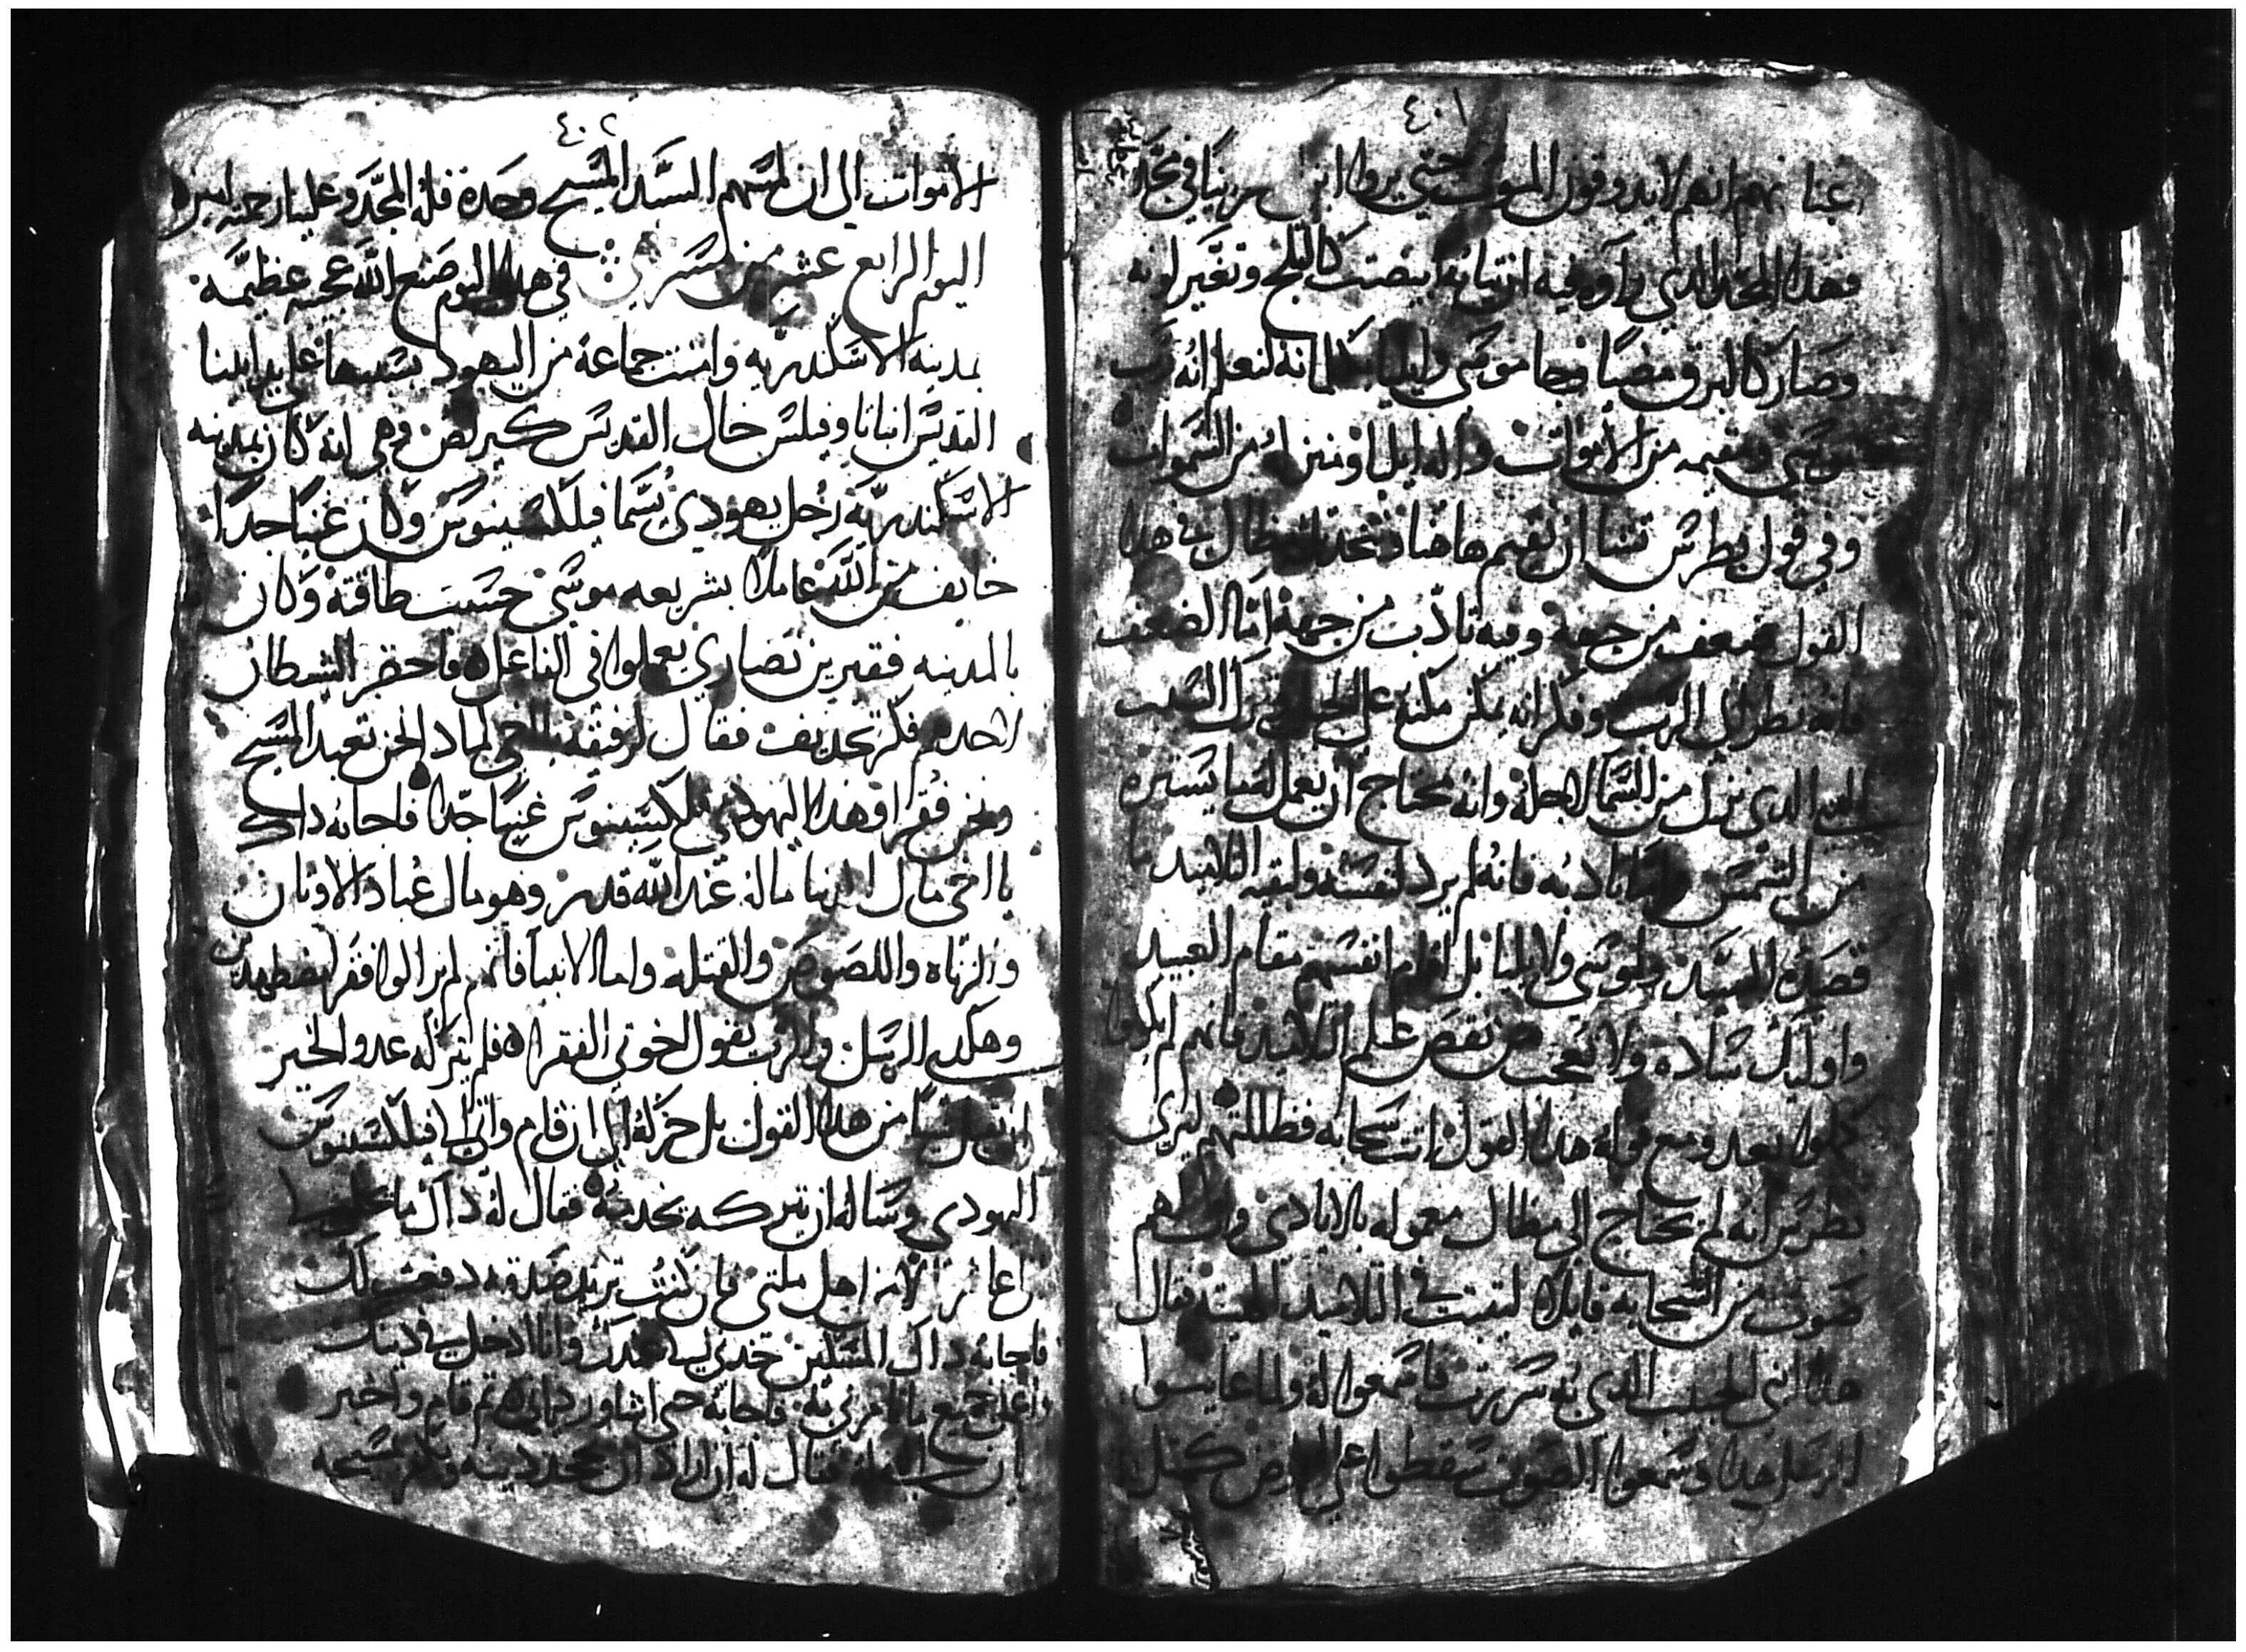 ٤٠١
عنا بهم انهم لا يدوقون الموت حتى يروا ابن
وهدا المجد الدي راوه فيه ان تيابه ابيضت كالتلج وتغير لونه
وصار كالبرق ومضيا وجا موسى وايليا لنعلم انه رب
موسى ومقيمه من الاموات واله ايليا ومنزله من السموات
وفي قول بطرس تشا ان نقيم هاهنا مظال في هدا
القول ضعف من جهه وفيه تادب من جهة اما الضعف
فانه نظر الى الرب وفكر انه يمكن مكته على الجبل
الدي نزل من السما لاجله وانه يحتاج ان يعمل له ما يستره
من الشمس واما تادبه فانه لم يرد لنفسه ولبقيه التلاميد ما
قصده للسيد ولموسى ولايليا بل اقام انفسهم مقام العبيد
واوليك ساده ولا تعجب من نقص علم التلاميد فانهم لم يكونوا
كملوا بعد ومع قوله هدا القول اتت سحابه فظللتهم ليرى
بطرس انه لم يحتاج الى مظال معموله بالايادي
صوت من السحابه قايلا ليتبت في التلاميد فقال
هدا ابني الحبيب الدي به سررت فاسمعوا له ولما عاينوا
الرسل هدا وسمعوا الصوت سقطوا على الارض كمتل
٤٠٢
الاموات الى ان لمسهم السيد المسيح وحده فله المجد وعلينا رحمته امين
اليوم الرابع عشر من مسري في هدا اليوم صنع الله عجيبه عظيمه
بمدينه الاسكندريه وامنت جماعة من اليهود بسببها على يد ابينا
القديس انبا تاوفيلس خال القديس كيرلص وهي انه كان بمدينه
الاسكندريه رجل يهودي يسما فيلكسينوس وكان غنيا جدا
خايف من الله عاملا بشريعه موسى حسب طاقته وكان
بالمدينه فقيرين نصارى يعملوا في الفاعل فاحضر الشيطان
لاحدهم فكر تجديف فقال لرفيقه يا اخي لمادا نحن نعبد المسيح
ونحن فقرا وهدا اليهودي فيلكسينوس غنيا جدا فاجابه داك
يا اخي مال الدنيا ماله عند الله قدر وهو مال عباد الاوتان
والزناه واللصوص والقتله واما الانبيا فانهم لم يزالوا فقرا مضطهدين
وهكدى الرسل والرب يقول اخوتي الفقرا فلم يتركه عدو الخير
ان يقبل شيا من هدا القول بل حركه الى ان قام واتى الى فيلكسينوس
اليهودي وساله ان يتركه يخدمه فقال له داك ما
الا من اهل ملتي فان كنت تريد صدقه دفعت لك
فاجابه داك المسكين خدني عندك وانا ادخل في دينك
واعمل جميع ما تامرني به فاجابه حتى اشاور تم قام واخبر
فقال له ان اراد ان يجحد دينه ويكفر بمسيحه